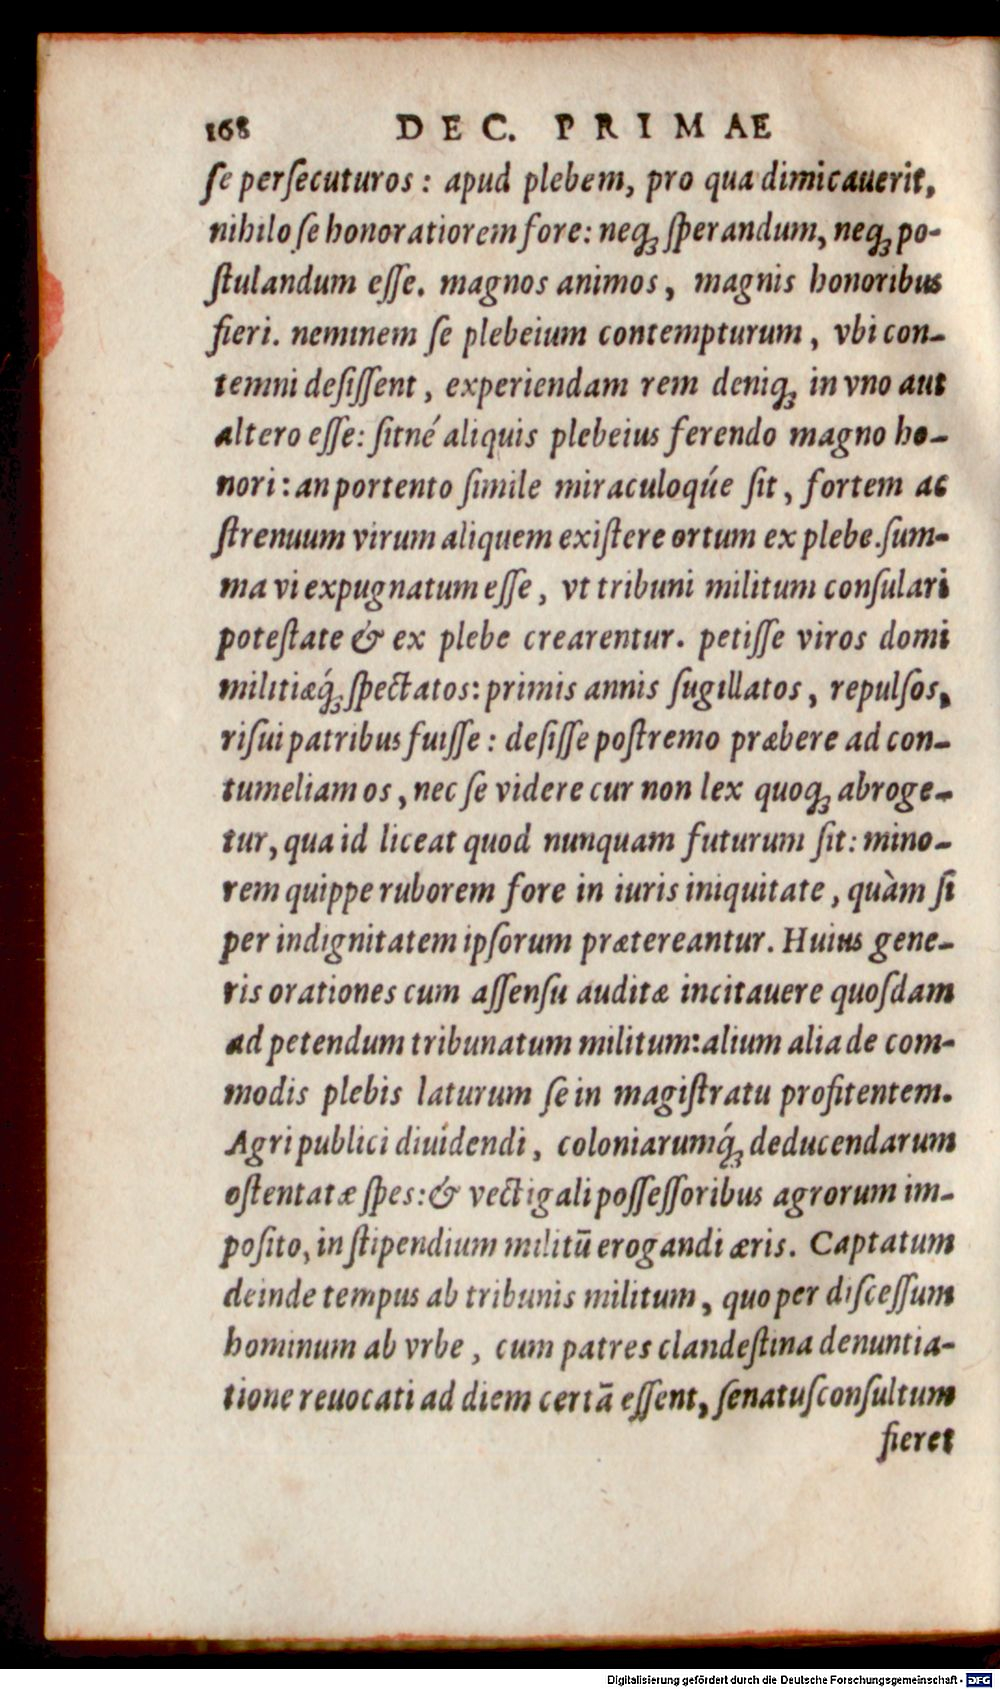 168 DEC. PRIMAE
ſe perſecuturos: apud plebem, pro qua dimicauerit,
nihilo ſe honoratiorem fore: neq; ſperandum, neq; po-
ſtulandum eſſe. magnos animos, magnis honoribus
fieri. neminem ſe plebeium contempturum, vbi con-
temni deſiſſent, experiendam rem deniq; in vno aut
altero eſſe: ſitné aliquis plebeius ferendo magno ho-
nori: an portento ſimile miraculoqúe ſit, fortem ac
ſtrenuum virum aliquem exiſtere ortum ex plebe. ſum-
ma vi expugnatum eſſe, vt tribuni militum conſulari
poteſtate & ex plebe crearentur. petiſſe viros domi
militiæq́; ſpectatos: primis annis ſugillatos, repulſos,
riſui patribus fuiſſe: deſiſſe poſtremo præbere ad con-
tumeliam os, nec ſe videre cur non lex quoq; abroge-
tur, qua id liceat quod nunquam futurum ſit: mino-
rem quippe ruborem fore in iuris iniquitate, quàm ſi
per indignitatem ipſorum prætereantur. Huius gene-
ris orationes cum aſſenſu auditæ incitauere quoſdam
ad petendum tribunatum militum: alium alia de com-
modis plebis laturum ſe in magiſtratu profitentem.
Agri publici diuidendi, coloniarumq́; deducendarum
oſtentatæ ſpes: & vectigali poſſeſſoribus agrorum im-
poſito, in ſtipendium militū erogandi æris. Captatum
deinde tempus ab tribunis militum, quo per diſceſſum
hominum ab vrbe, cum patres clandeſtina denuntia-
tione reuocati ad diem certā eſſent, ſenatuſconſultum
fieret
Digitalisierung gefördert durch die Deutsche Forschungsgemeinschaft - DFG